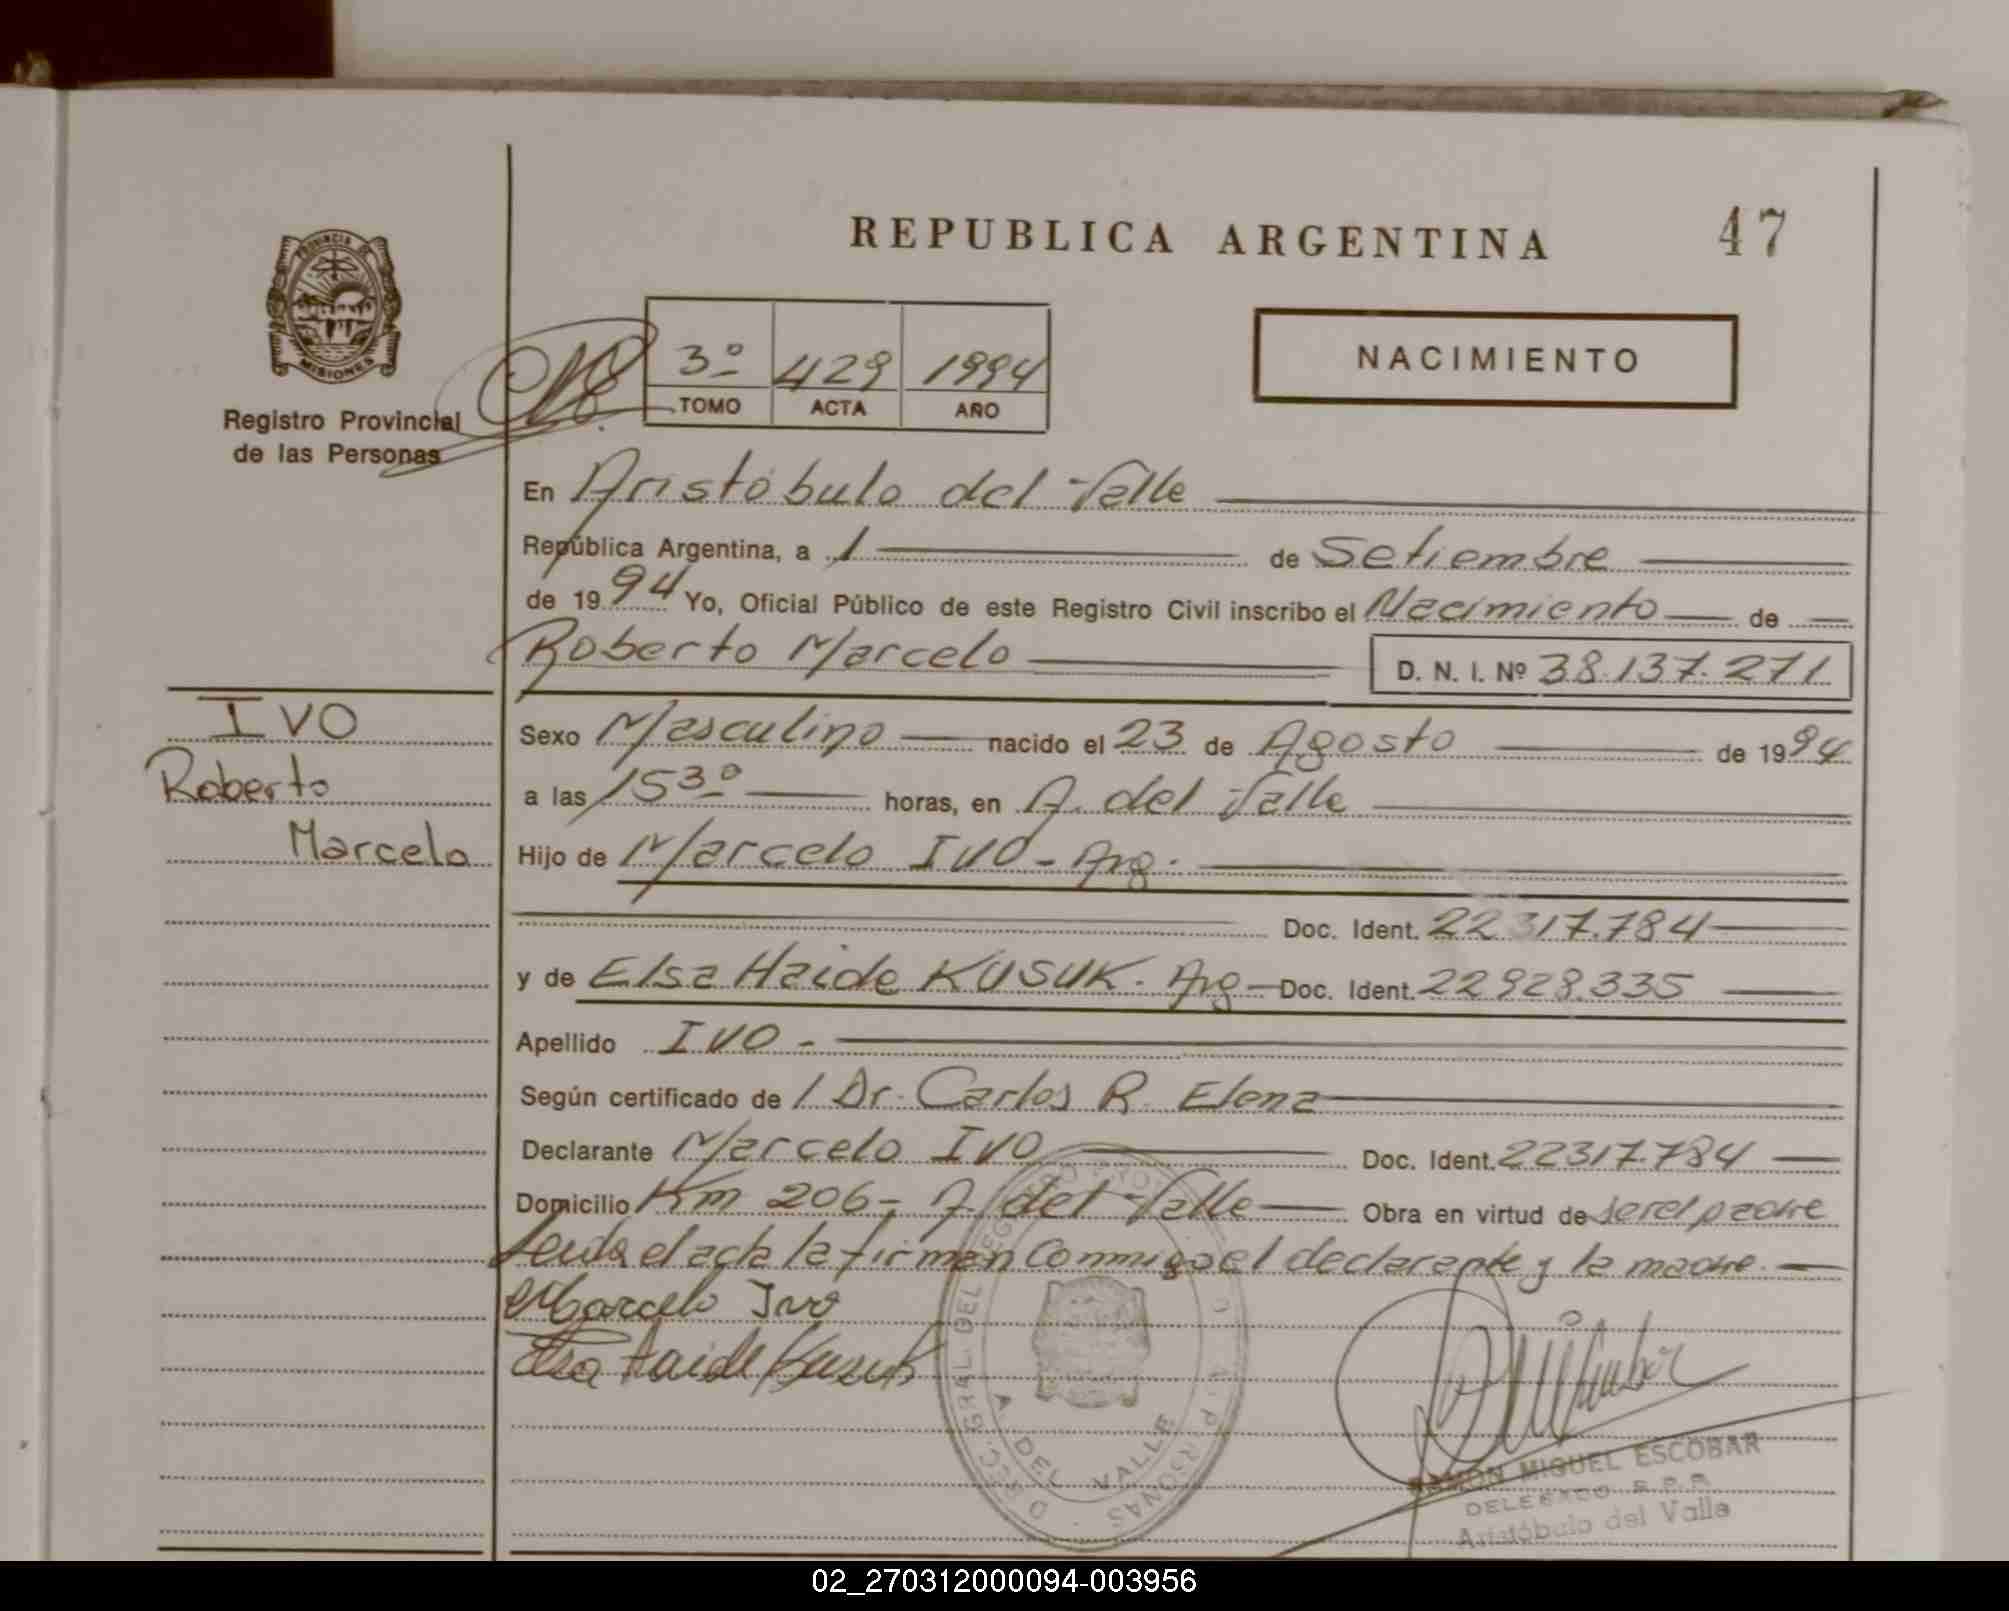 REPUBLICA ARGENTINA
47
PROVINCIA DE
MISIONES
Registro Provincial
de las Personas
3º 429 1994
TOMO ACTA AÑO
NACIMIENTO
En Aristóbulo del Valle
República Argentina, a 1 de Setiembre
de 1994 Yo, Oficial Público de este Registro Civil inscribo el Nacimiento de
Roberto Marcelo D. N. I. Nº 38.137.271
IVO
Roberto
Marcelo
Sexo Masculino nacido el 23 de Agosto de 1994
a las 15 30 horas, en A. del Valle
Hijo de Marcelo IVO - Arg.
Doc. Ident. 22317.784
y de Elsa Haide KUSUK. Arg Doc. Ident. 22928.335
Apellido IVO -
Según certificado de l Dr. Carlos R. Elena
Declarante Marcelo IVO Doc. Ident. 22317784
Domicilio Km 206 - A. del Valle Obra en virtud de ser el padre
Leida el acta la firman conmigo el declarante y la madre.
Marcelo Ivo
Elsa Haide Kusuk
A. DEL VALLE
RAMON MIGUEL ESCOBAR
DELEGADO R.P.P.
Aristóbulo del Valle
02_270312000094-003956